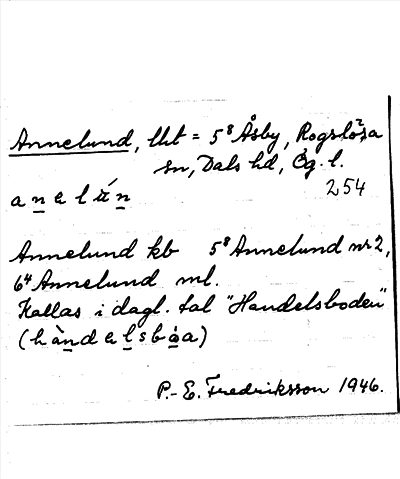 Annelund, lht = 5⁸ Åsby, Rogslösa
sn, Dals hd, Ög. l.
254
a n e l ú n
Annelund kb 5⁸ Annelund nr 2,
6⁴ Annelund ml.
Kallas i dagl. tal "Handelsboden"
(hàndelsbòa)
P.-E. Fredriksson 1946.